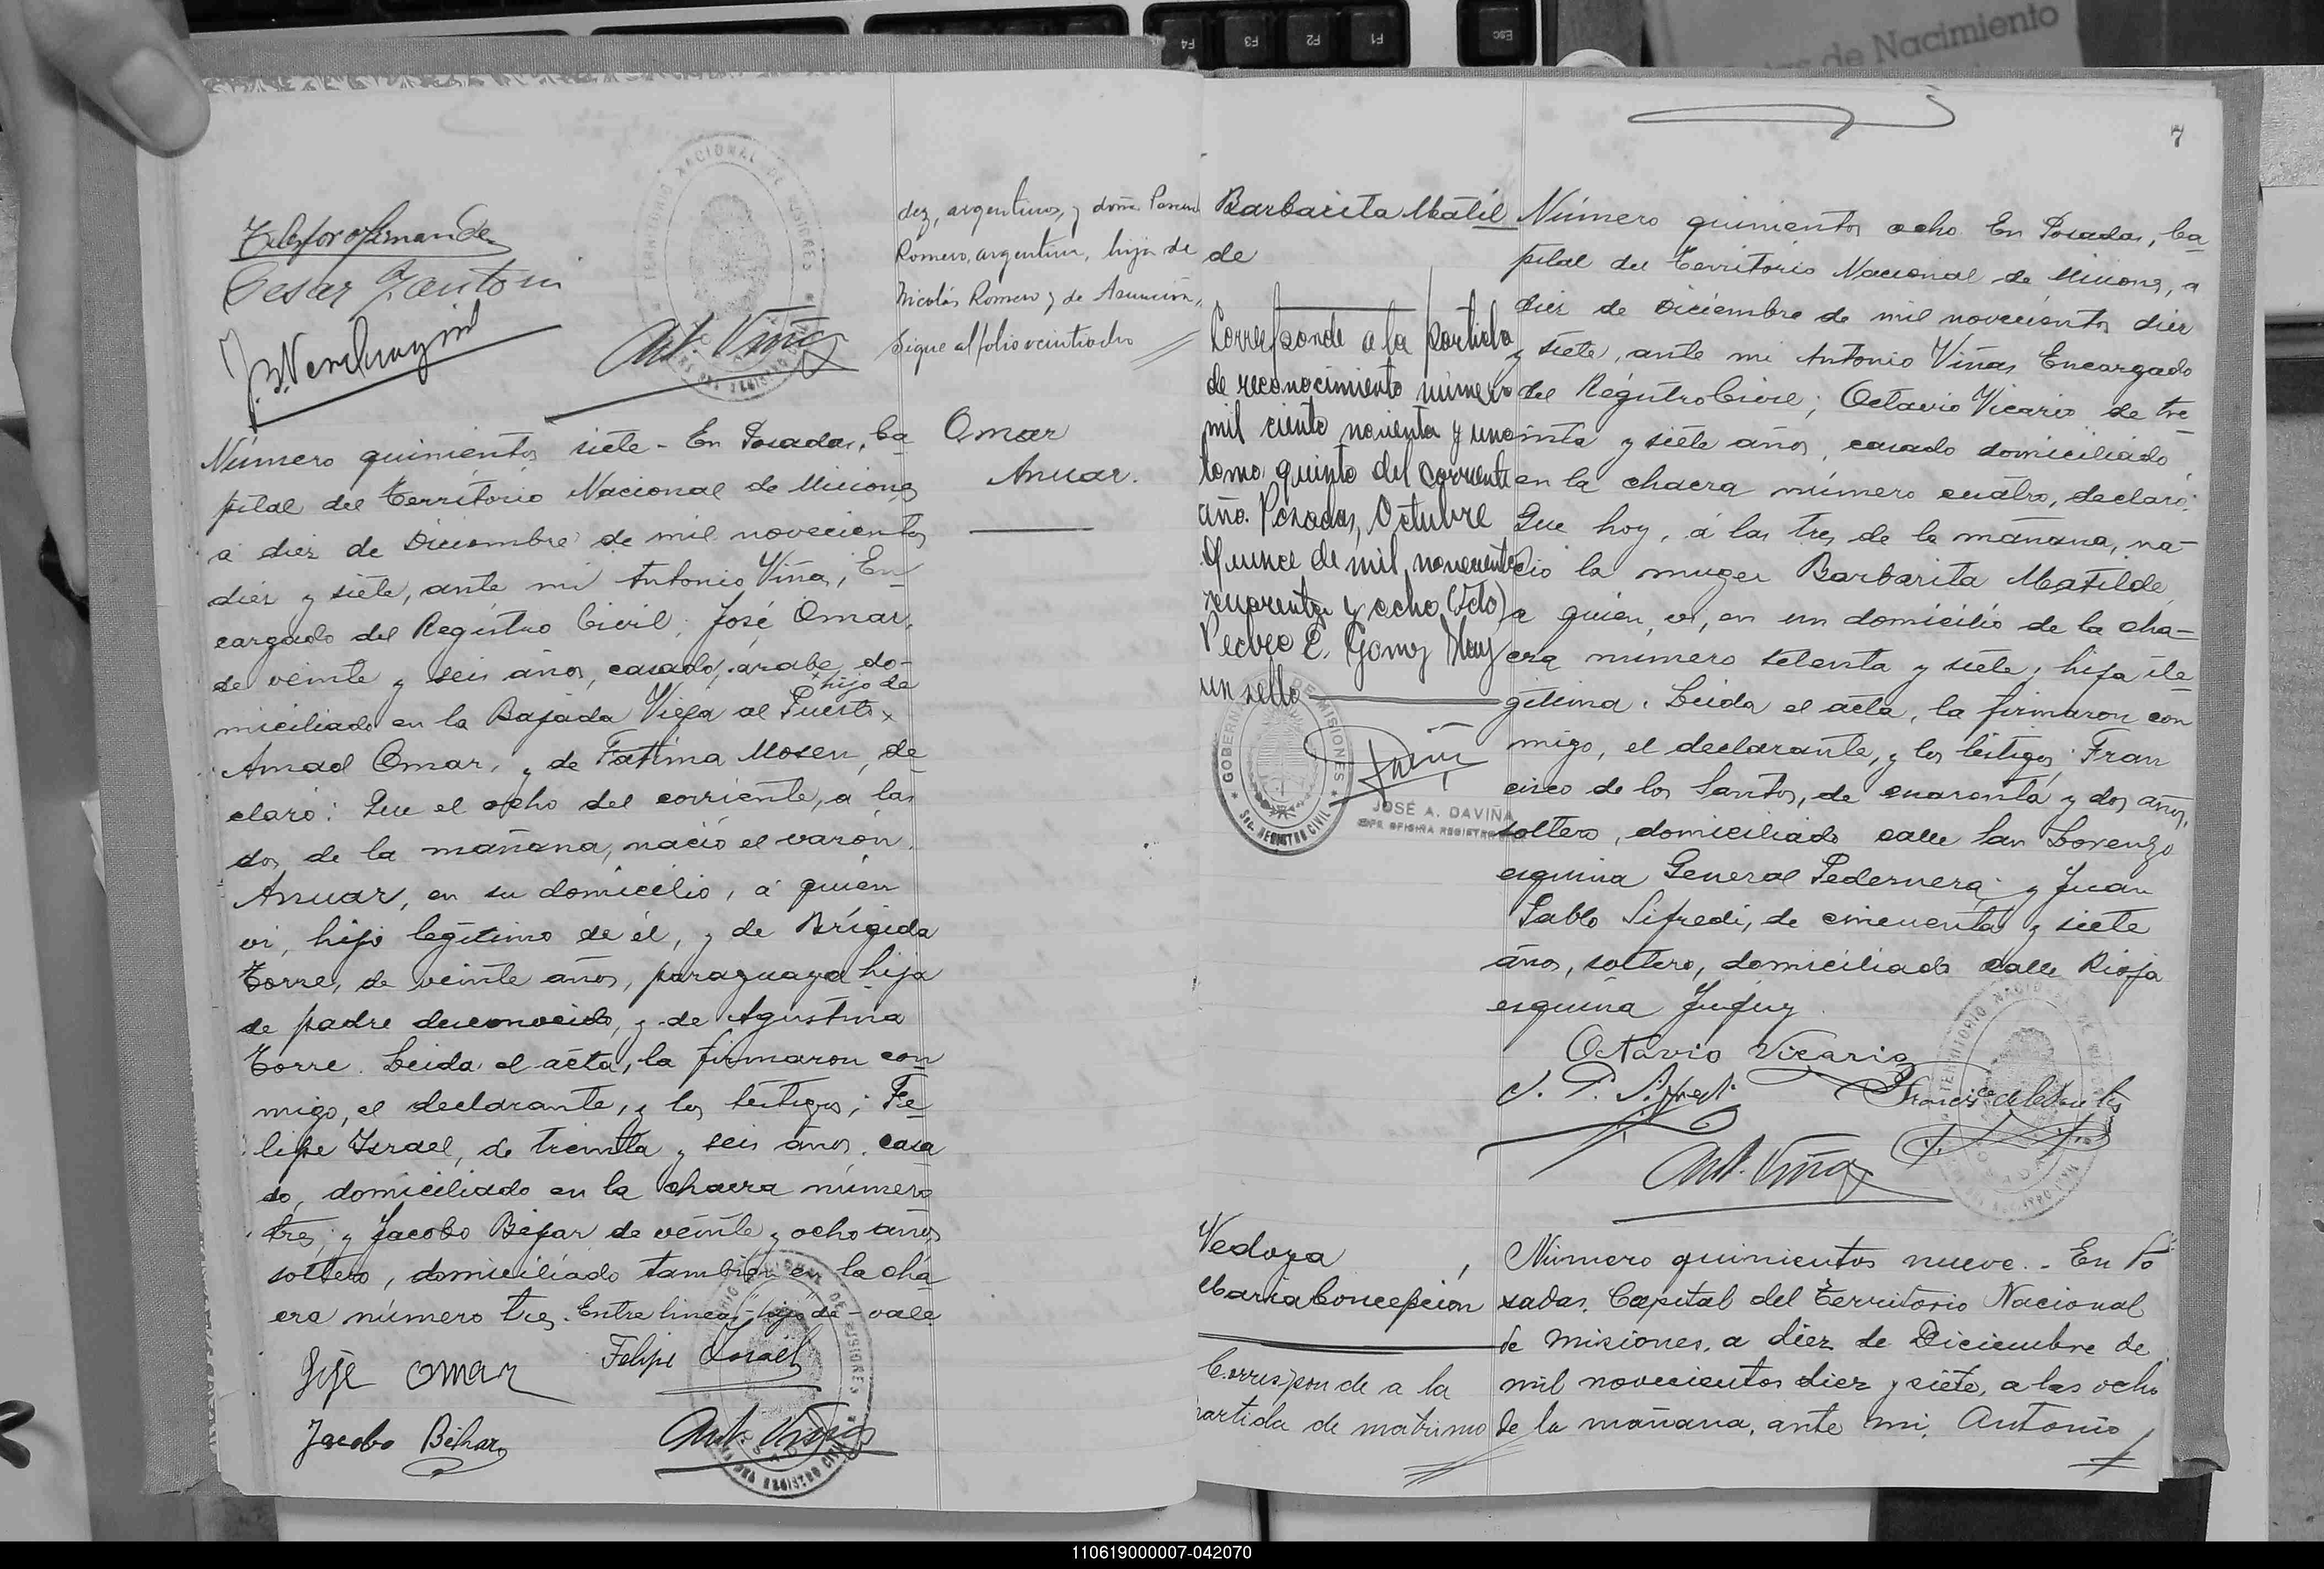 F4 F3 F2 F1 Esc
de Nacimiento
7
Telesforo Fernandez
Cesar Zantoni
Ant. Viñas
TERRITORIO NACIONAL DE MISIONES
dez, argentinos, y doña
Romero, argentina, hija de
Nicolás Romero y de Asunción,
Sigue al folio veintiocho
Omar
Anuar.
Número quinientos siete - En Posadas, Ca-
pital del Territorio Nacional de Misiones
a diez de Diciembre de mil novecientos
diez y siete, ante mi Antonio Viñas, En-
cargado del Registro Civil; José Omar,
de veinte y seis años, casado, árabe, do-
hijo de
miciliado en la Bajada Vieja al Puerto x
Amad Omar, y de Fatima Mosen, de-
claró: Que el ocho del corriente, a las
dos de la mañana, nació el varón
Anuar, en su domicilio, á quien
vi, hijo legítimo de él, y de Brígida
Torre, de veinte años, paraguaya hija
de padre desconocido, y de Agustina
Torre. Leida el acta, la firmaron con
migo, el declarante, y los testigos; Fe-
lipe Israel, de treinta y seis años, casa
do, domiciliado en la chacra número
tres; y Jacobo Bejar de veinte y ocho años
soltero, domiciliado también en la chá
cra número tres. Entre lineas - "hijo de" - vale
José Omar
Felipe Israel
Jacobo Behar
Ant. Viñas
Barbarita Matil
de
Corresponde a la partida
de reconocimiento número
mil ciento noventa y uno
tomo quinto del corriente
año. Posadas, Octubre
quince de mil novecientos
cuarenta y ocho (fdo)
Pedro E. Gomez Hay
un sello
GOBERN DE MISIONES
Sec. REGISTRO CIVIL
JOSÉ A. DAVIÑA
JEFE OFICINA REGISTRO
Número quinientos ocho En Posadas, Ca-
pital del Territorio Nacional de Misiones, a
diez de Diciembre de mil novecientos diez
y siete, ante mi Antonio Viñas Encargado
del Registro Civil; Octavio Vicario de tre-
inta y siete años, casado domiciliado
en la chacra número cuatro, declaró:
Que hoy, á las tres de la mañana, na-
ció la muger Barbarita Matilde,
a quien vi, en un domicilio de la cha-
cra número setenta y siete; hija ile-
gítima. Leida el acta, la firmaron con
migo, el declarante, y los testigos; Fran
cisco de los Santos, de cuarenta y dos años,
soltero, domiciliado calle San Lorenzo
esquina General Pedernera; y Juan
Pablo Sifredi, de cincuenta y siete
años, soltero, domiciliado calle Rioja
esquina Jujuy.
Octavio Vicario
J. P. Sifredi
Francisco de los Santos
Ant. Viñas
Vedoya,
Maria Concepción
Corresponde a la
partida de matrimo
Número quinientos nueve. - En Po
sadas, Capital del Territorio Nacional
de Misiones, a diez de Diciembre de
mil novecientos diez y siete, a las ocho
de la mañana, ante mi, Antonio
110619000007-042070